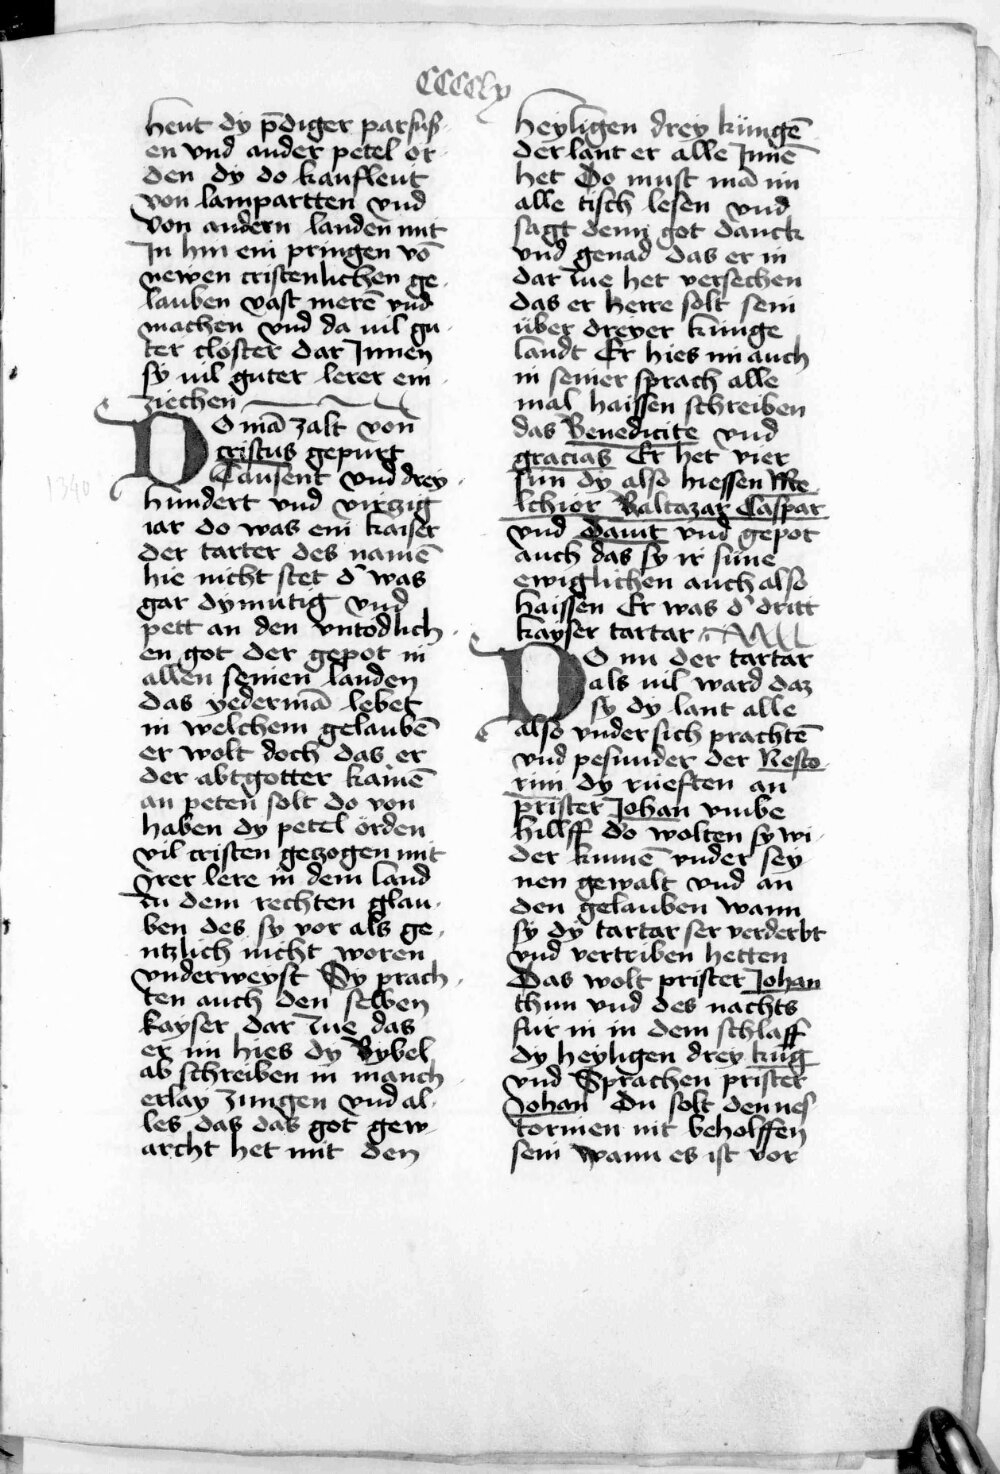 CCCCly
hent dy p̄diger parfuſſ
en vnd ander petel or
den dy do kaufleut
von lampartten vnd
von andern landen mit
In hin ein pringen vō
newen cristenlichen ge
lauben vast merē vnd
machen vnd da uil gu
ter closter dar Innen
sy uil guter lerer ein
ziechen
DO mā zalt von
cristus gepurt
Tausent vnd drey
hundert vnd virzig
iar do was ein kaiser
der tarter des namē
hie nicht stet d' was
gar dymutig vnd
pett an den vntodlich
en got der gepot in
allen seinen landen
das yedermā lebet
in welchem gelaubē
er wolt doch das er
der abtgotter kainē
an peten solt do von
haben dy petel örden
vil cristen gezogen mit
irer lere in dem land
zu dem rechten glau
ben des sy vor als ge
ntzlich nicht woren
vnderweyst Sy prach
ten auch den selben
kayser dar zue das
er im hies dy Bybel
ab schreiben in manch
erlay zungen vnd al
les das das got gew
archt het mit den
heyligen drey küngē
der lant er alle Innē
het Do must mā im
alle tisch lesen vnd
sagt dem got danck
vnd genad das er in
dar zue het versechen
das er herre solt sein
über dreyer künge
landt Er hies im auch
in seiner sprach alle
mal haissen schreiben
das Benedicite vnd
gracias Er het vier
sun dy also hiessen Me
lchior Baltazar Caspar
vnd Dauit vnd gepot
auch das sy ir süne
ewiglichen auch also
haissen Er was d' dritt
kayser tartar
DO nu der tartar
als uil ward daz
sy dy lant alle
also vnder sich prachtē
vnd pesunder der Nesto
rini dy rüeften an
prister Johan vmbe
hillff do wolten sy wi
der kumē vnder sey
nen gewalt vnd an
den gelauben wann
sy dy tartar ser verderbt
vnd vertriben hetten
Das wolt prister Johan
thun vnd des nachts
fur in in dem schlaff
dy heyligen drey küg
vnd Sprachen prister
Johan Du solt den nes
torinen nit beholffen
sein wann es ist vor
1340